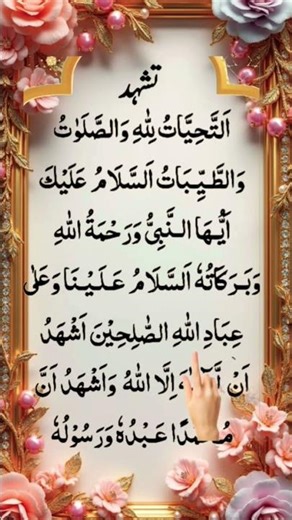 تشہد
اَلتَّحِيَّاتُ لِلّٰهِ وَالصَّلَوٰتُ
وَالطَّيِّبَاتُ اَلسَّلَامُ عَلَيْكَ
اَيُّهَا النَّبِىُّ وَرَحْمَةُ اللهِ
وَبَرَكَاتُهٗ اَلسَّلَامُ عَلَيْنَا وَعَلٰى
عِبَادِ اللهِ الصّٰلِحِيْنَ اَشْهَدُ
اَنْ اِلَّا اللهُ وَاَشْهَدُ اَنَّ
عَبْدُهٗ وَرَسُوْلُهٗ